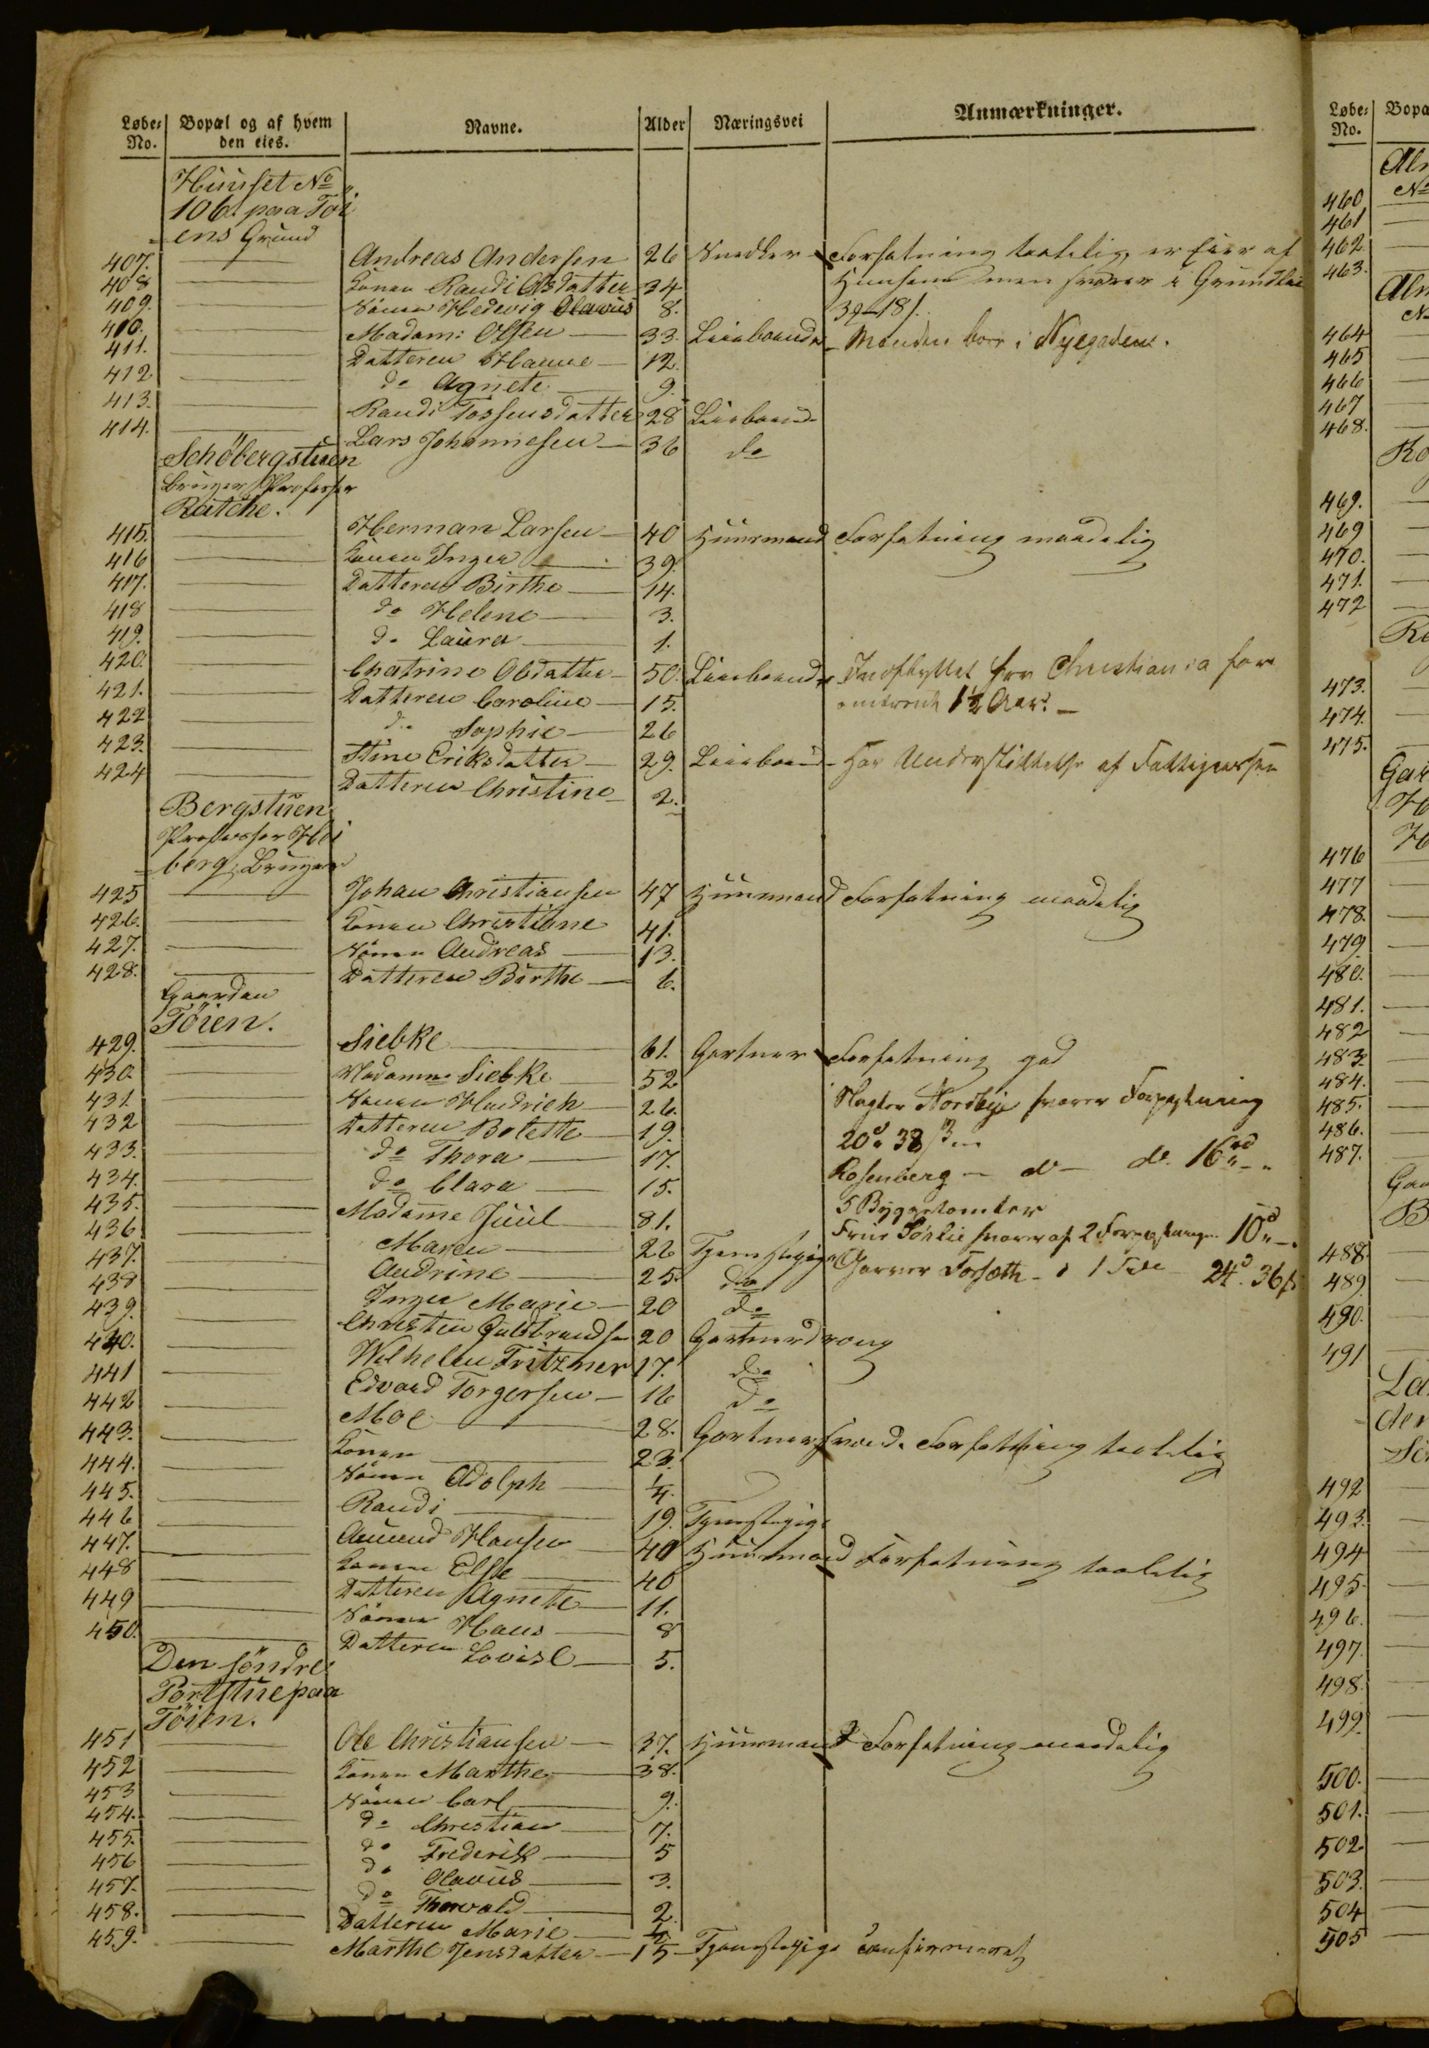 Løbe-No. | Bopæl og af hvem den eies. | Navne. | Alder | Næringsvei | Anmærkninger.
Huuset No
106 paa Töi
ens Grund
407. Andreas Andersen 26 Snedker Forfatning taalelig, er Eier af
408 Konen Randi Olsdatter 34 Huusene men svarer i Grundleie
409. Sönen Hedevig Olavus 8. 3 18 s.
410. Madam: Olsen 33. Leieboende Manden boer i Nyegaden.
411. Datteren Hanne 12.
412 do Agnete 9.
413. Randi Tossensdatter 28 Leieboende
414. Lars Johannesen 36 do
Schöbergstuen
Bruger Professor
Ratche.
415. Herman Larsen 40 Huusmand Forfatning maadelig
416 Konen Inger 39.
417. Datteren Birthe 14.
418 do Helene 3.
419. do Laura 1.
420. Chatrine Olsdatter 50. Leieboende Indflyttet fra Christiania for
421. Datteren Caroline 15. omtrent 1½ Aar.
422 do Sophie 26
423. Stine Eriksdatter 29. Leieboende Har Understöttelse af Fattigcassen
424 Datteren Christine 2.
Bergstuen
Professor Hei
berg Bruger
425 Johan Christiansen 47 Huusmand Forfatning maadelig
426. Konen Christiane 41.
427. Sönen Andreas 13.
428. Datteren Birthe 6.
Gaarden
Töien.
429. Siebke 61. Gartner Forfatning god
430. Madamme Siebke 52
431 Sönen Hendrich 26. Slagter Nordbye svarer Forpagtning
432 Datteren Bolette 19. 20 38
433. do Thora 17. Rosenberg do 16
434. do Clara 15. 5 Byggetomter
435. Madame Juul 81. Frue svarer af 2 10
436 Maren 22 Tjenestepige Garver Forseth 1 24 36
437. Andrine 25. do
438 Inger Marie 20 do
439. Christen Guldbrandsen 20 Gartnerdreng
440. Wilhelm Fritzner 17. do
441 Edvard Torgersen 16 do
442 Moe 28. Gartnersvend. Forfatning taalelig
443. Konen 23.
444. Sönen Adolph ¼.
445. Randi 19. Tjenestepige
446 Amund Hansen 40 Huusmand Forfatning taalelig
447. Konen Else 40
448 Datteren Agnete 11.
449 Sönen Hans 8
450. Datteren Lovise 5.
Den söndre
Portstue paa
Töien.
451 Ole Christiansen 37. Huusmand Forfatning maadelig
452 Konen Marthe 38.
453 Sönen Carl 9.
454. do Christian 7.
455. do Frederik 5
456 do Olavus 3.
457. do Thorvald 2.
458. Datteren Marie
459. Marthe Jensdatter 15 Tjenestepige confirmeret
Løbe-No. | Bopæ
460
461
462
463.
464
465
466
467
468.
469.
469
470.
471.
472
473.
474.
475.
Gar
476
477
478.
479
480.
481.
482
483.
484.
485.
486.
487.
488
489.
490.
491
492
493.
494
495.
496.
497.
498.
499.
500.
501.
502
503.
504
505